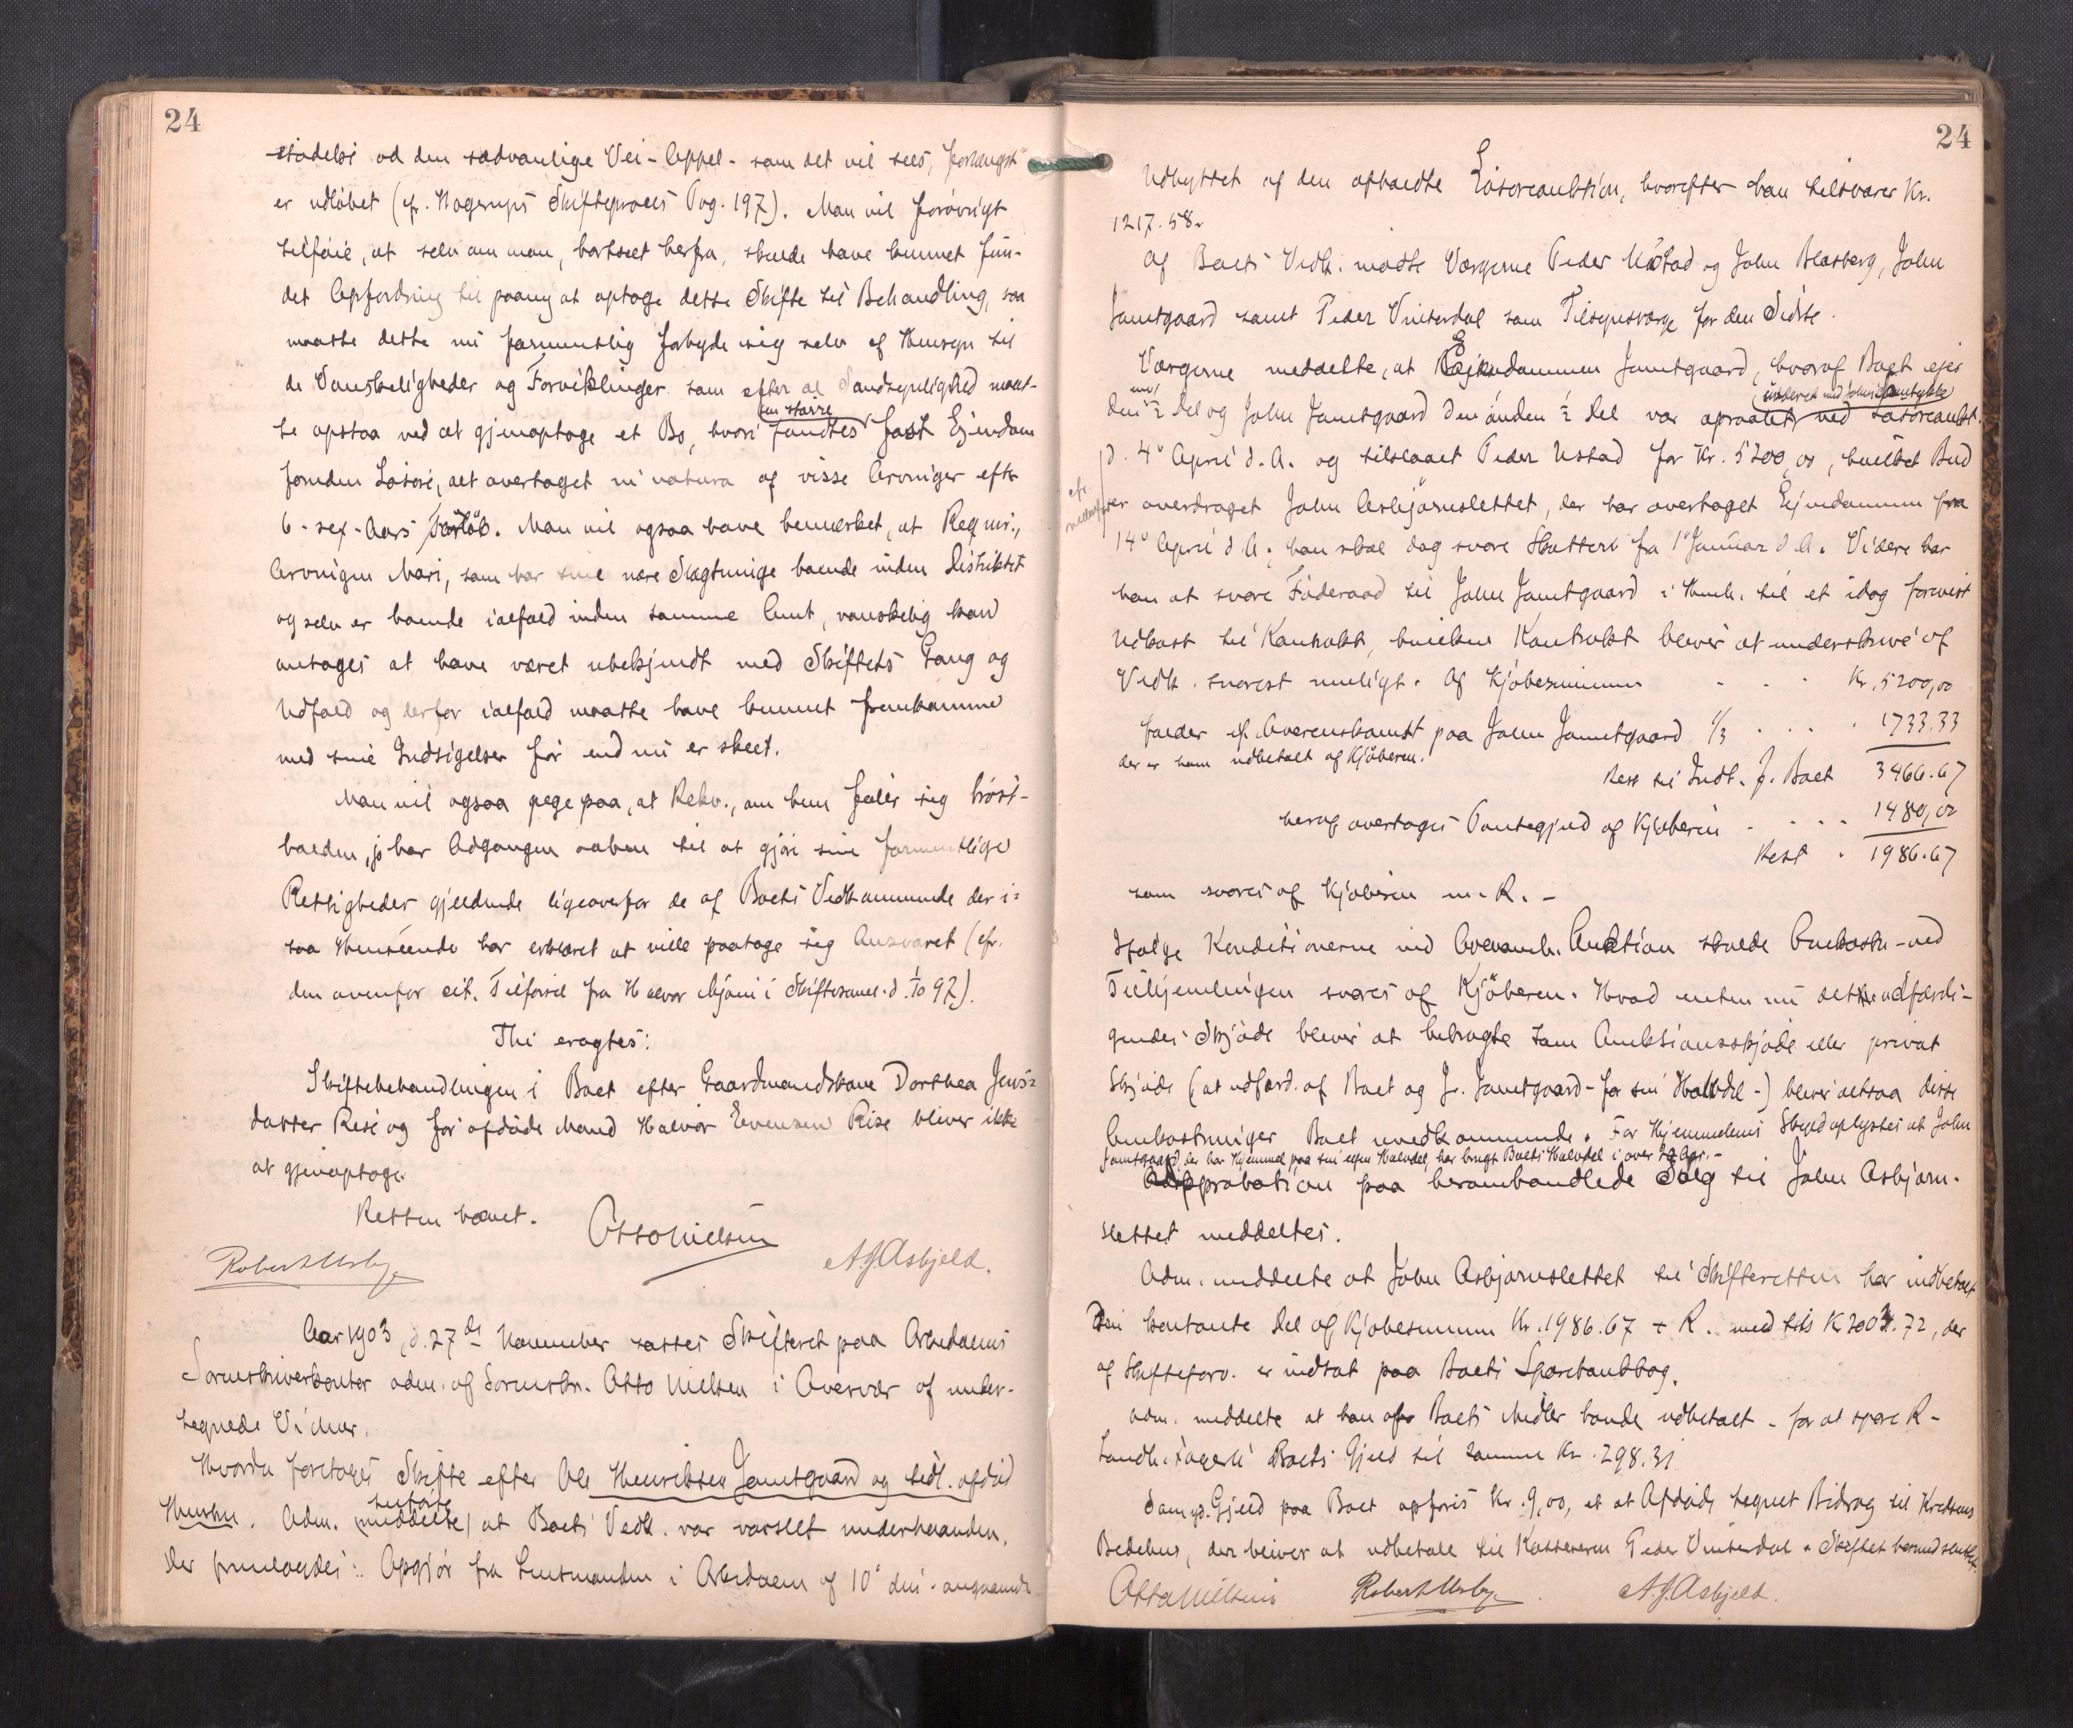 24
stadelse ad den sædvanlige Vei - Appel - som det vil sees, forlængst
er udløbet (cfr. Hagerups Skifteproces Pag. 197). Man vil forøvrigt
tilføie, at selv om man, bortseet herfra, skulde have kunnet fun-
det Opfordring til paany at optage dette Skifte til Behandling, saa
maatte dette nu formentlig forbyde sig selv af Hensyn til
de Vanskeligheder og Forviklinger som efter al Sandsynlighed maat-
for større
te opstaa ved at gjenoptage et Bo, hvori fandtes fast Ejendom
foruden Løsøre, alt overtaget in natura af visse Arvinger efter
6 - sex - Aars Forløb. Man vil ogsaa have bemærket, at Requir.,
Arvingen Mari, som har sine nære Slægtninge boende inden Distriktet
og selv er boende ialfald inden samme Amt, vanskelig kan
antages at have været ubekjendt med Skiftets Gang og
Udfald og derfor ialfald maatte have kunnet fremkomme
med sine Indsigelser før end nu er skeet.
Man vil ogsaa pege paa, at Rekv., om hun føler sig brøst-
holden, jo har Adgangen aaben til at gjøre sine formentlige
Rettigheder gjældende ligeoverfor de af Boets Vedkommende der i
saa Henseende har erklæret at ville paatage sig Ansvaret (cfr.
den ovenfor cit. Tilførsel fra Halvor Mjøen i Skiftesaml. d. 1/10 97).
Thi eragtes:
Skiftebehandlingen i Boet efter Gaardmandskone Dorthea Jens-
datter Rise og før afdøde Mand Halvor Evensen Rise bliver ikke
at gjenoptage.
Retten hævet.
Otto Nielsen
Robert Uxby
A J Asbjeld.
Aar 1903, d. 27de November sattes Skifteret paa Orkedalens
Sorenskriverkontor adm. af Sorenskr. Otto Nielsen i Overvær af under-
tegnede Vidner.
Hvorda foretoges Skifte efter Ole Henriksen Jamtgaard og tidl. afdød
Hustru. Adm. meddelte at Boets Vedk. var varslet underhaanden.
Der fremlagdes: Opgjør fra Lensmanden i Orkedalen af 10de ds. angaaende
24
Udbyttet af den afholdte Løsøreauktion, hvorefter han tilsvarer Kr.
1217.58.
Af Boets Vedk. mødte Værgerne Peder Ustad og John Blæsberg, John
Jamtgaard samt Peder Vinterdal som Tilsynsværge for den Sidste.
Værgerne meddelte, at Ejendommen Jamtgaard, hvoraf Boet ejer
ene
den ½ Del og John Jamtgaard den anden ½ Del var opraabt ved Løsøreaukt.
d. 4de April d. A. og tilslaaet Peder Ustad for Kr. 5200,00, hvilket Bud
cfr.
nedenfor
er overdraget John Asbjørnslettet, der har overtaget Ejendommen fra
14de April d. A., han skal dog svare Skatterne fra 1ste Januar d. A. Videre har
han at svare Føderaad til John Jamtgaard i Henh. til et idag forevist
Udkast til Kontrakt, hvilken Kontrakt bliver at underskrive af
Vedk. snarest muligt. Af Kjøbesummen Kr. 5200,00
falder ef. Overenskomst paa John Jamtgaard 1/3 1733.33
der er ham udbetalt af Kjøberen.
Rest til Indt. f. Boet 3466.67
heraf overtages Pantegjeld af Kjøberen 1480,00
Rest 1986.67
som svares af Kjøberen m. R. -
Ifølge Konditionerne ved Ovennævnte Auktion skulde Omkostn. ved
Tilhjemlingen svares af Kjøberen. Hvad enten nu det udfærdi-
gendes Skjøde bliver at betragte som Auktionsskjøde eller privat
Skjøde (at udfærd. af Boet og J. Jamtgaard - for sin Halvdel -) bliver altsaa disse
Omkostninger Boet uvedkommende. For Hjemmelens Skyld oplystes at John
Jamtgaard, der har Hjemmel paa sin egen Halvdel, har brugt Boets Halvdel i over 20 Aar. -
Approbation paa heromhandlede Salg til John Asbjørn-
slettet meddeltes.
Adm. meddelte at John Asbjørnslettet til Skifteretten har indbetalt
Den kontante Del af Kjøbesummen Kr. 1986.67 + R. med tils Kr 2003.72, der
af Skifteforv. er indsat paa Boets Sparebankbog.
Adm. meddelte at han af Boets Midler havde udbetalt - for at spare R -
Landh. Fagerli Boets Gjeld til samme Kr. 298.31
Som yd. Gjeld paa Boet opføres Kr. 9,00, et af Afdøde tegnet Bidrag til Kredsens
Bedehus, der bliver at udbetale til Kassereren Peder Vinterdal. Skiftet hermed sluttet.
Otto Nielsen
Robert Uxby
A J Asbjeld.